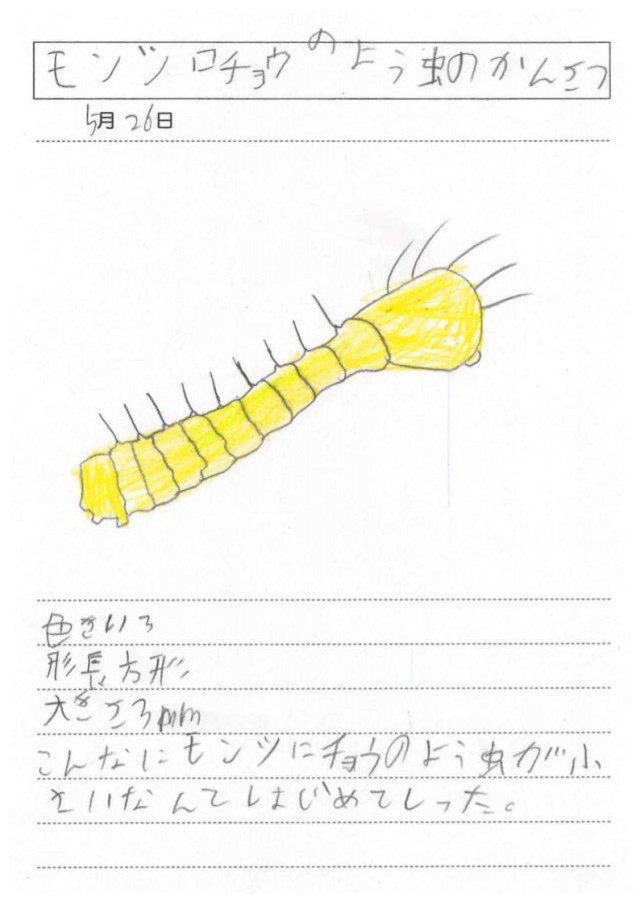 モンシロチョウのよう虫のかんさつ
5月26日
色きいろ
形長方形
大きさ3mm
こんなにモンシにチョウのよう虫が小
さいなんてはじめてしった。